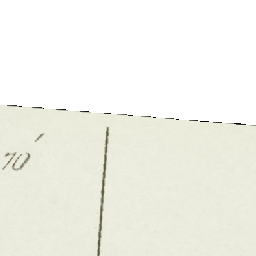 70′